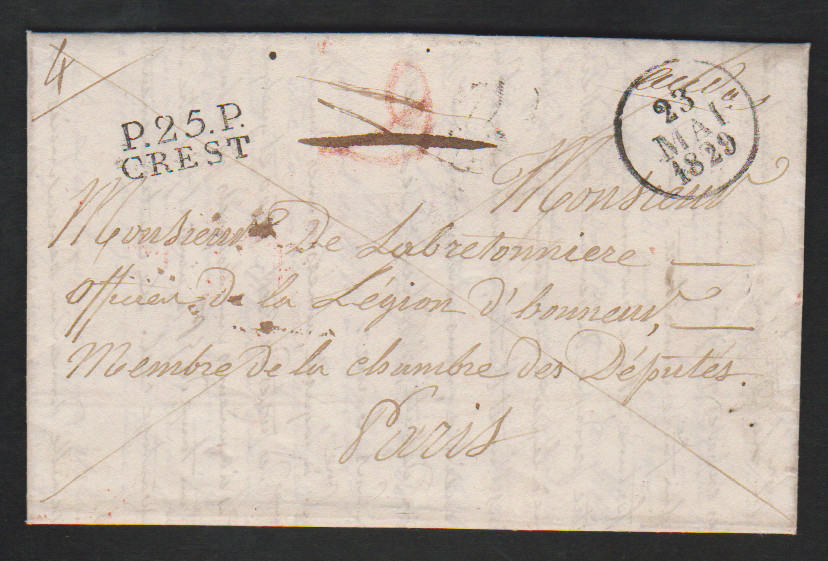 4
P.25.P.
CREST
23
MAI
1829
Monsieur
Monsieur De Labretonniere
officier de la Légion d'honneur,
Membre de la chambre des Députés.
Paris